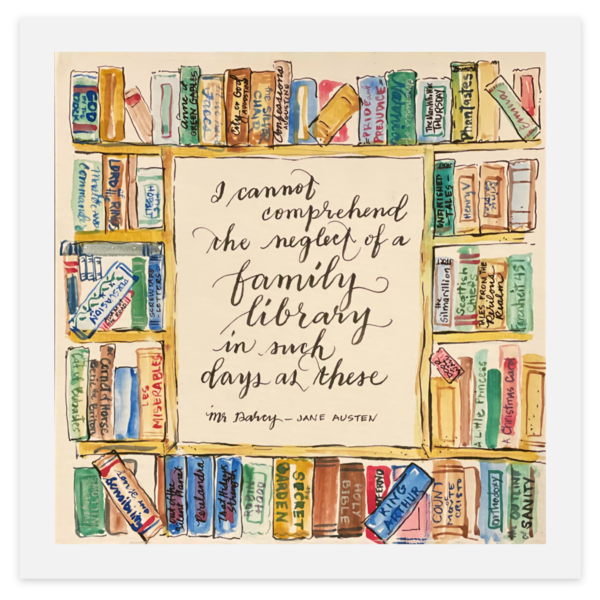 ANNE of GREEN GABLES
City of God
AUGUSTINE
Confessions
AUGUSTINE
PRIDE and PREJUDICE
The Man Who Was THURSDAY
Phantastes
LORD of the RINGS
HOBBIT
UNFINISHED TALES
Henry V
I cannot
comprehend
the neglect of a
family
library
in such
days as these
Mr Darcy — JANE AUSTEN
PERSUASION
SCREWTAPE LETTERS
the Silmarillion
Scottish Chiefs
TALES FROM THE Perilous Realm
Fahrenheit 451
LES MISERABLES
A Little Princess
A Christmas Carol
sense and Sensibility
Out of the Silent Planet
Perelandra
That Hideous Strength
ROBIN HOOD
the SECRET GARDEN
HOLY BIBLE
INFERNO
KING ARTHUR
COUNT of MONTE CRISTO
the OUTLINE of SANITY